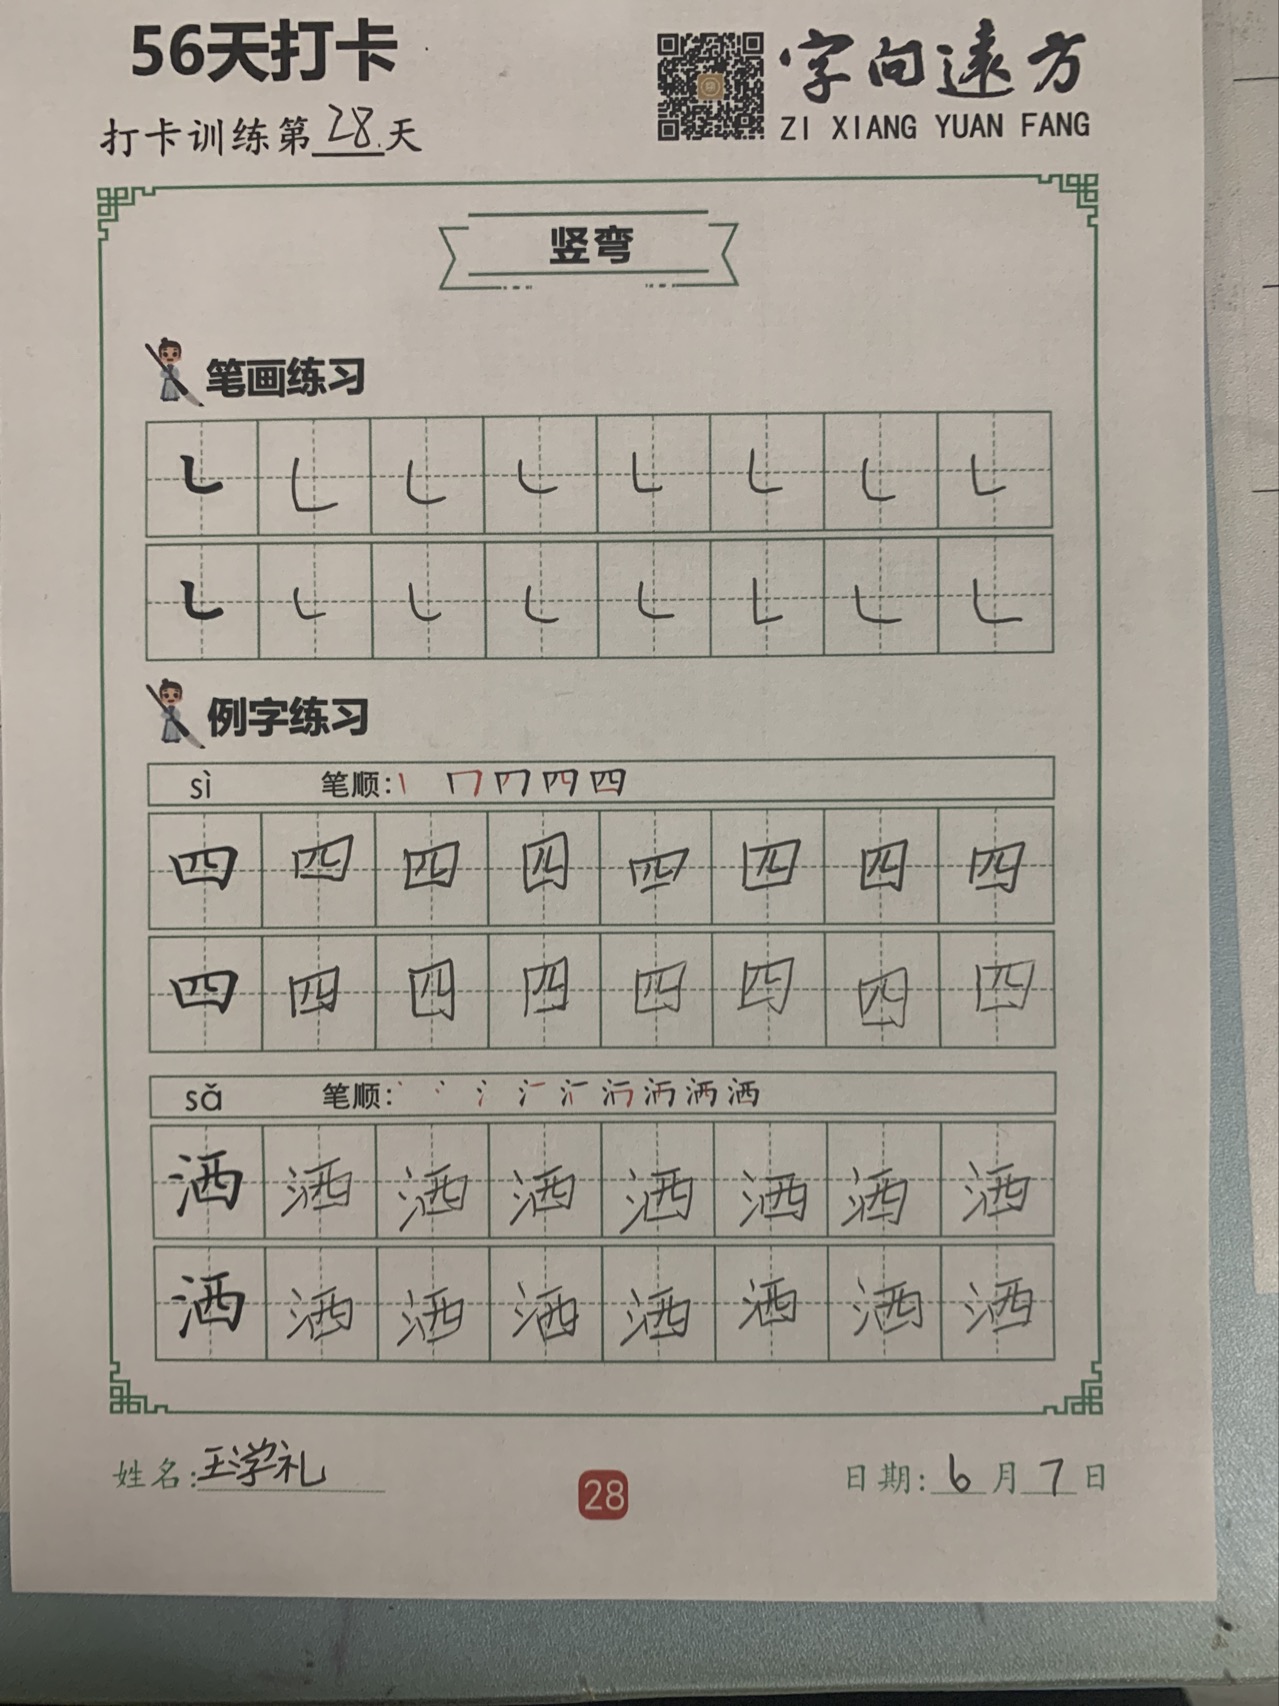 56天打卡
字向遠方
ZI XIANG YUAN FANG
打卡训练第28天
竖弯
笔画练习
㇄ ㇄ ㇄ ㇄ ㇄ ㇄ ㇄ ㇄
㇄ ㇄ ㇄ ㇄ ㇄ ㇄ ㇄ ㇄
例字练习
sì 笔顺: 四
四 四 四 四 四 四 四 四
四 四 四 四 四 四 四 四
sǎ 笔顺: 洒
洒 洒 洒 洒 洒 洒 洒 洒
洒 洒 洒 洒 洒 洒 洒 洒
姓名:王学礼
28
日期:6月7日